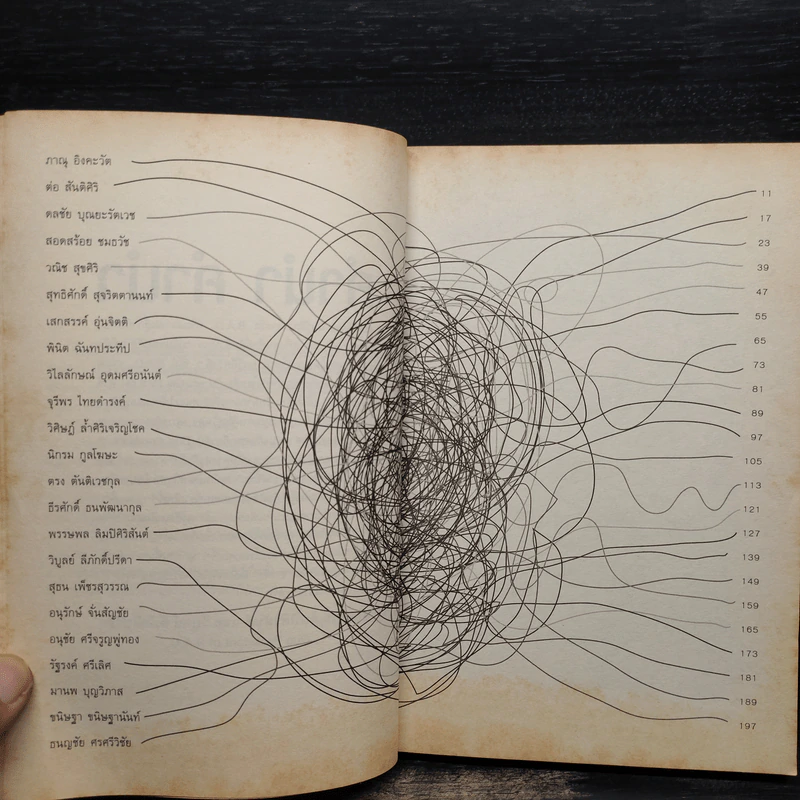 ภาณุ อิงคะวัต
ต่อ สันติศิริ
ดลชัย บุณยะรัตเวช
สอดสร้อย ชมธวัช
วณิช สุขศิริ
สุทธิศักดิ์ สุจริตตานนท์
เสกสรรค์ อุ่นจิตติ
พินิต ฉันทประทีป
วิไลลักษณ์ อุดมศรีอนันต์
จุรีพร ไทยดำรงค์
วิศิษฎ์ ล้ำศิริเจริญโชค
นิกรม กูลโฆษะ
ตรง ตันติเวชกุล
ธีรศักดิ์ ธนพัฒนากุล
พรรษพล ลิมปิศิริสันต์
วิบูลย์ ลีภักดิ์ปรีดา
สุธน เพ็ชรสุวรรณ
อนุรักษ์ จั่นสัญชัย
อนุชัย ศรีจรูญพู่ทอง
รัฐรงค์ ศรีเลิศ
มานพ บุญวิภาส
ขนิษฐา ขนิษฐานันท์
ธนญชัย ศรศรีวิชัย
11
17
23
39
47
55
65
73
81
89
97
105
113
121
127
139
149
159
165
173
181
189
197